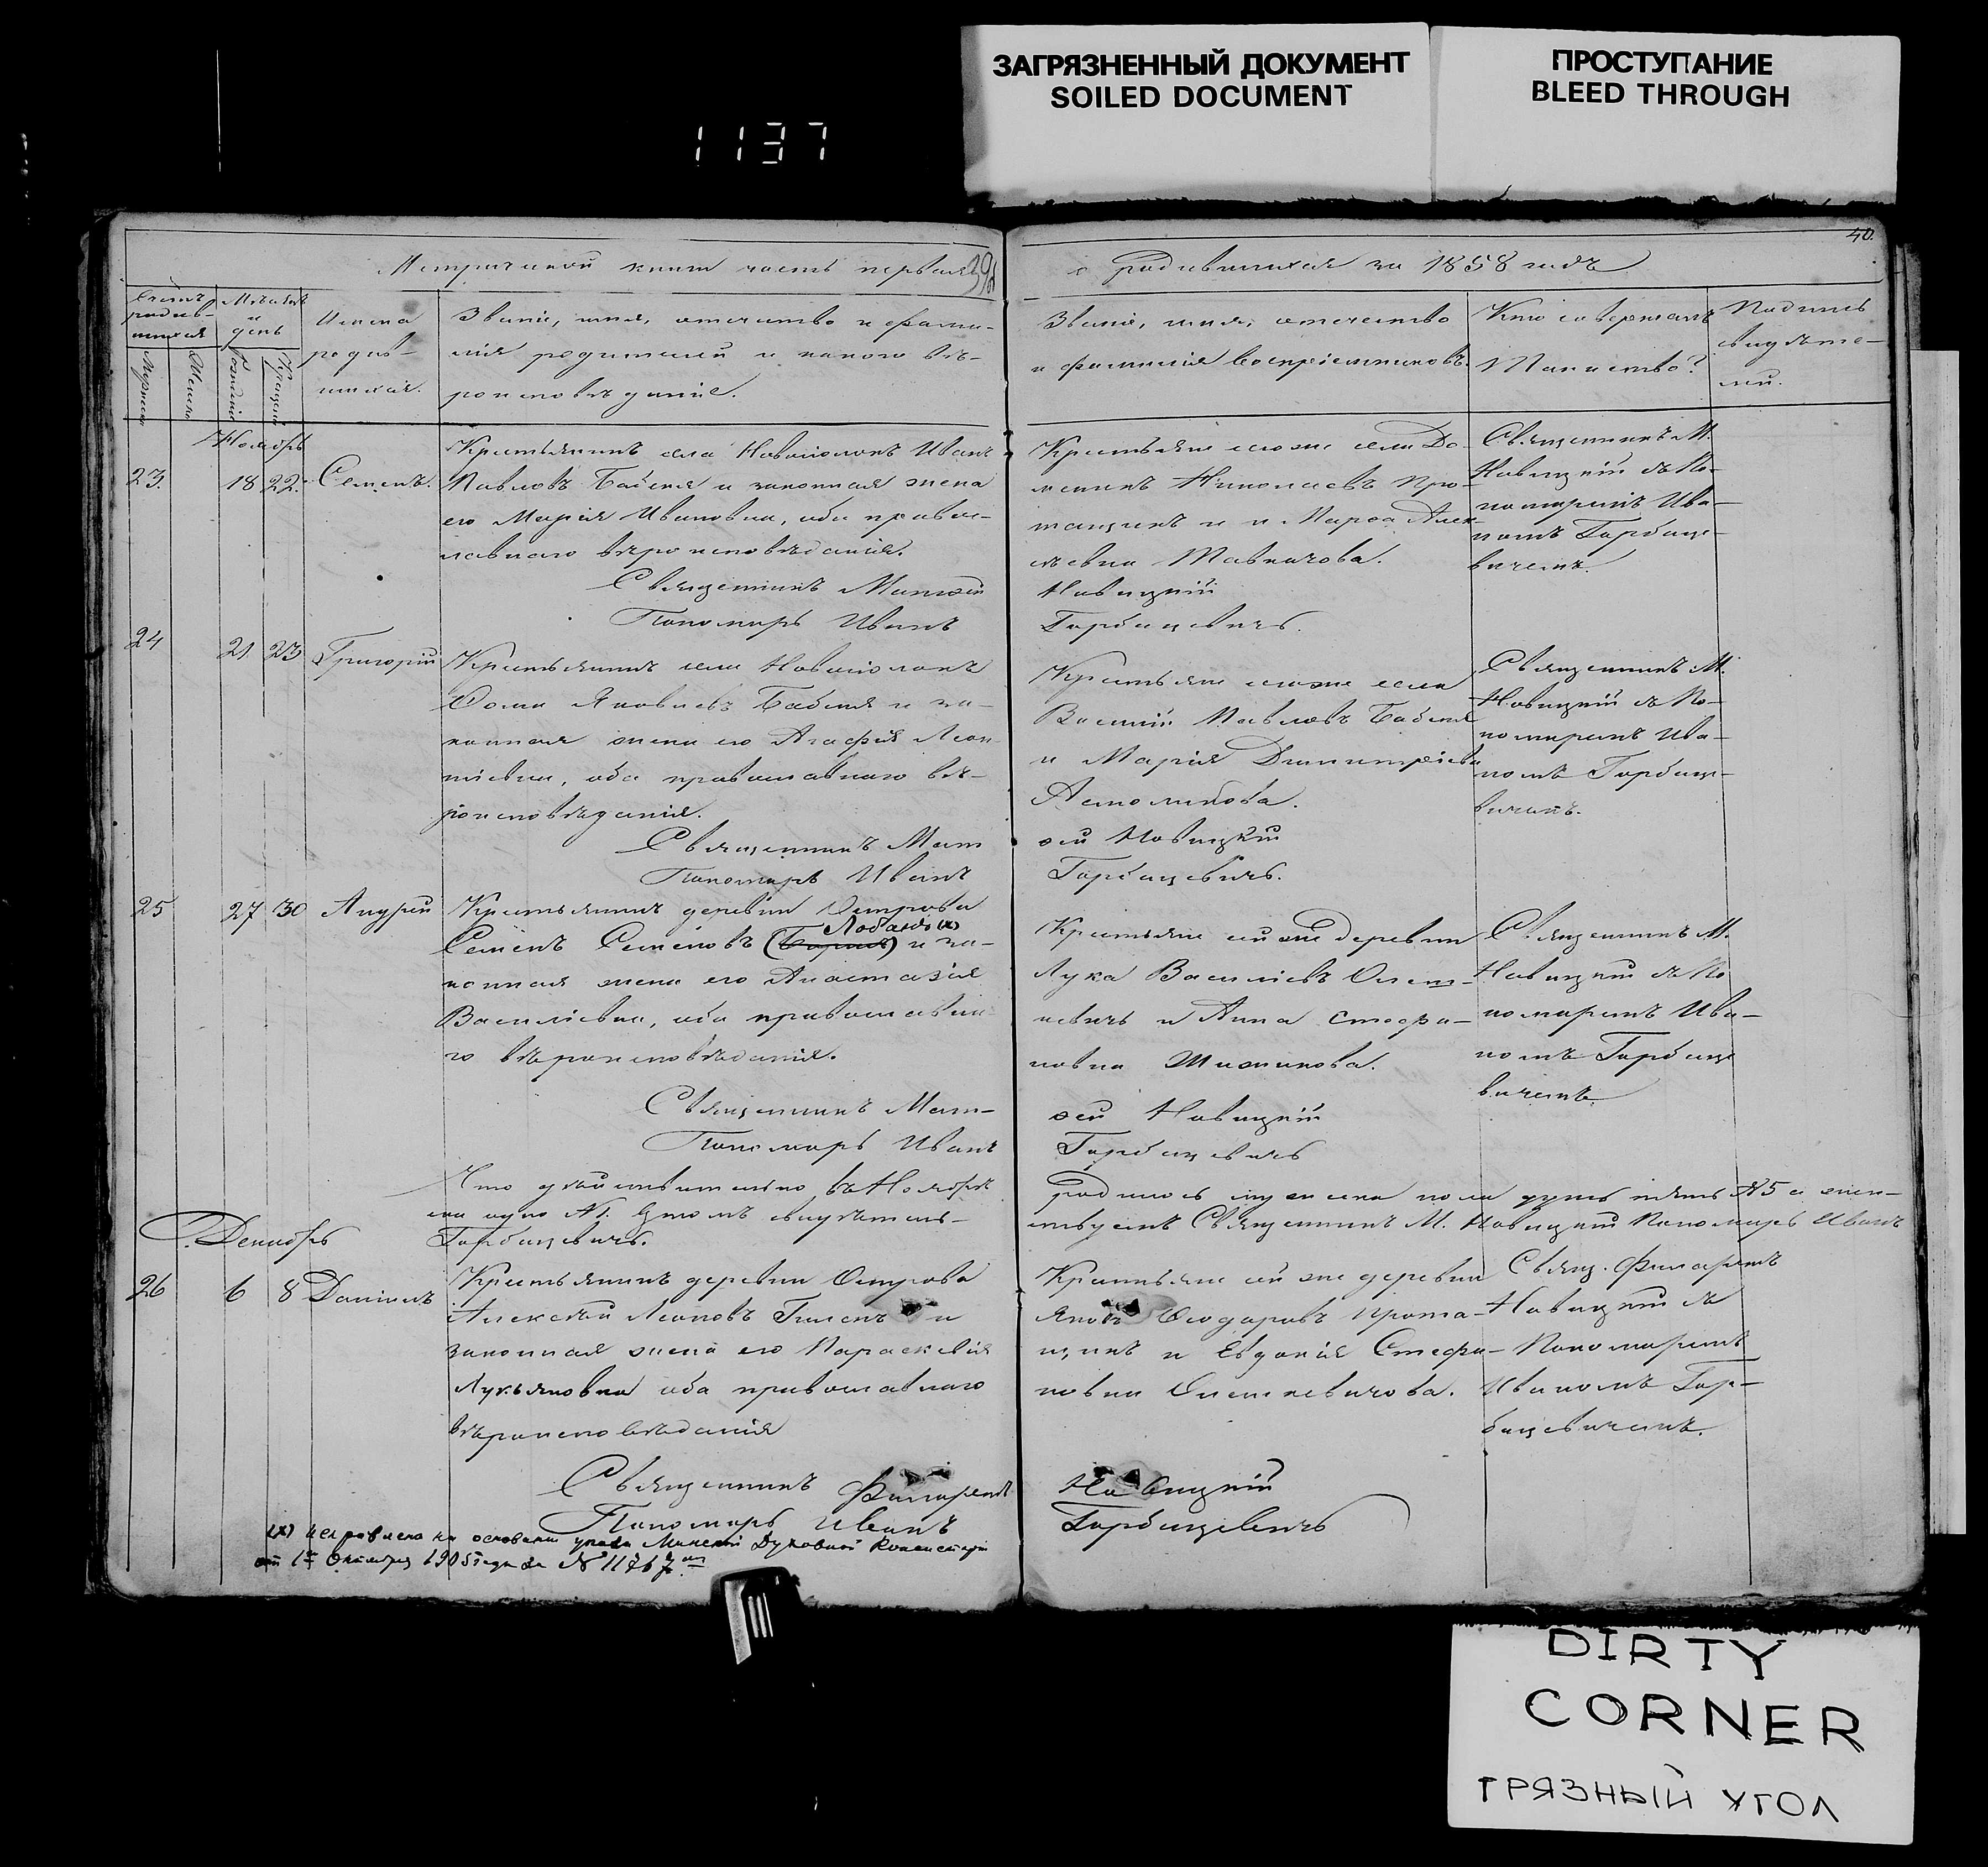 ЗАГРЯЗНЕННЫЙ ДОКУМЕНТ
SOILED DOCUMENT
ПРОСТУПАНИЕ
BLEED THROUGH
1137
40.
Метрической книги часть первая
о родившихся за 1858 годъ
Мѣсяцъ
и
день
Имена
родив-
шихся.
Званіе, имя, отчество и фами-
лія родителей и какого вѣ-
роисповѣданіе.
Званіе, имя, отчество
и фамилія воспріемниковъ.
Кто совершалъ
Таинство?
Подпись
свидѣте-
лей.
Ноябрь
23. 18 22. Семенъ.
Крестьянинъ села Новоселокъ Иванъ
Павловъ Бабеня и законная жена
его Марія Ивановна, оба правос-
лавнаго вѣроисповѣданія.
Священникъ Матѳей
Пономарь Иванъ
Крестьяне того же села До-
менникъ Николаевъ Про-
тащикъ и Марѳа Алек-
сѣевна
Новицкій
Горбацевичъ.
Священникъ М.
Новицкій съ По-
номаремъ Ива-
номъ Горбаце-
вичемъ.
24 21. 23 Григорій
Крестьянинъ села Новоселокъ
Ѳома Яковлевъ Бабеня и за-
конная жена его Агафія Леон-
тіевна, оба православнаго вѣ-
роисповѣданія.
Священникъ Мат
Пономарь Иванъ
Крестьяне того же села
Василій Павловъ Бабеня
и Марія Димитріева
ѳей Новицкій
Горбацевичъ.
Священникъ М.
Новицкій съ По-
номаремъ Ива-
номъ Горбаце-
вичемъ.
25 27 30 Андрей
Крестьянинъ деревни Острова
Лобачъ (х)
Семенъ Семеновъ и за-
конная жена его Анастазія
Василіевна, оба православна-
го вѣроисповѣданія.
Священникъ Мат-
Пономарь Иванъ
Крестьяне сей же деревни
Лука Василіевъ Олеш-
кевичъ и Анна Стефа-
новна
ѳей Новицкій
Горбацевичъ
Священникъ М.
Новицкій съ По
номаремъ Ива-
номъ Горбаце
вичемъ.
Что дѣйствительно въ Ноябрѣ родилось мужеска пола душъ пять №5 а жен-
ска одно №1. въ томъ свидѣтель-ствуемъ Священникъ М. Новицкій Пономарь Иванъ
Горбацевичъ.
Декабрь
26 6 8 Даніилъ
Крестьянинъ деревни Острова
Алексѣй и
законная жена его Параскевія
Лукьяновна оба православнаго
вѣроисповѣданія
Священникъ Филаретъ
Пономарь Иванъ
Крестьяне сей же деревни
Яковъ Ѳеодоровъ Прота-
щикъ и Евдокія Стефа-
новна Олешкевичова.
Новицкій
Горбацевичъ
Свящ. Филаретъ
Новицкій съ
Пономаремъ
Иваномъ Гор-
бацевичемъ.
(х) исправлено на основании указа Минской Духовной Консистории
от 1го Октября 1905 года за № 11767.
DIRTY
CORNER
ГРЯЗНЫЙ УГОЛ